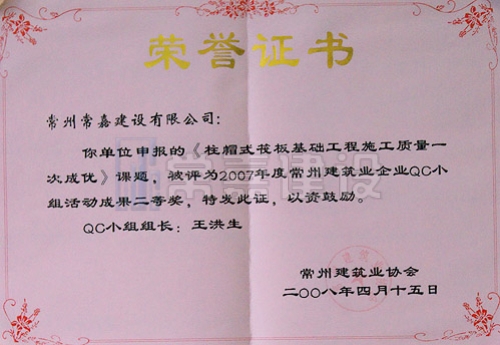 荣誉证书
常州常嘉建设有限公司：
你单位申报的《柱帽式筏板基础工程施工质量一
次成优》课题，被评为2007年度常州建筑业企业QC小
组活动成果二等奖，特发此证，以资鼓励。
QC小组组长：王洪生
常嘉建设
常州建筑业协会
二〇〇八年四月十五日